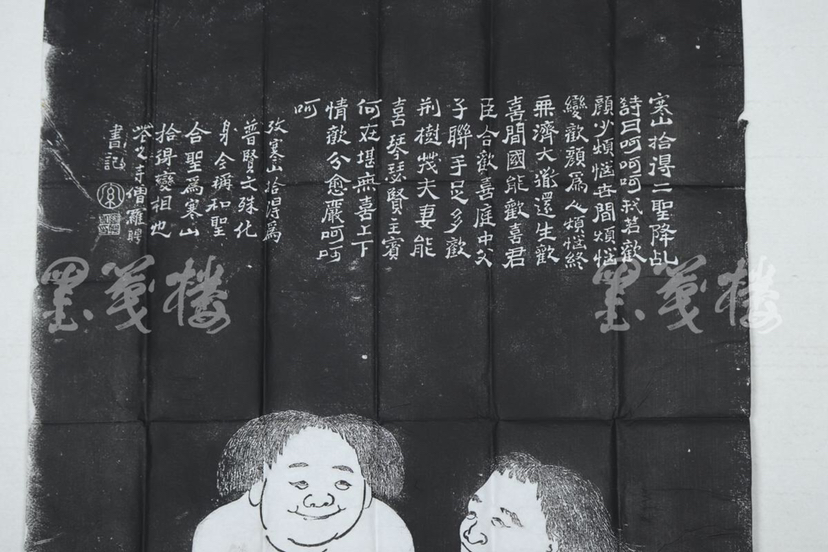 寒山拾得二聖降乩
詩曰呵呵呵我若歡
顏少煩惱世間煩惱
變歡顏爲人煩惱終
無濟大道還生歡
喜間國能歡喜君
臣合歡喜庭中父
子聯手足多歡
荊樹茂夫妻能
喜琴瑟賢主賓
何在堪無喜上下
情歡分愈嚴呵呵
呵
攷寒山拾得爲
普賢文殊化
身今稱和聖
合聖爲寒山
拾得變相也
花之寺僧羅聘
書記
墨笺楼
墨笺楼